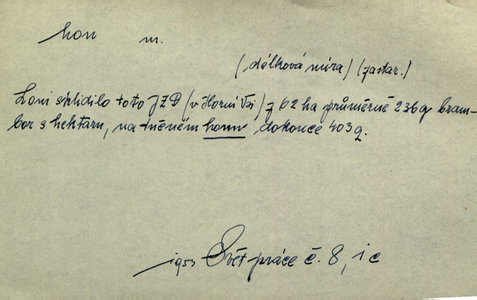 hon m.
(délková míra) (zastar.)
Loni sklidilo toto JZD (v Horní Vsi) z 62 ha průměrně 236 q bram-
bor s hektaru, na měném honu dokonce 403 q.
1953 Svět práce č. 8, 1 c